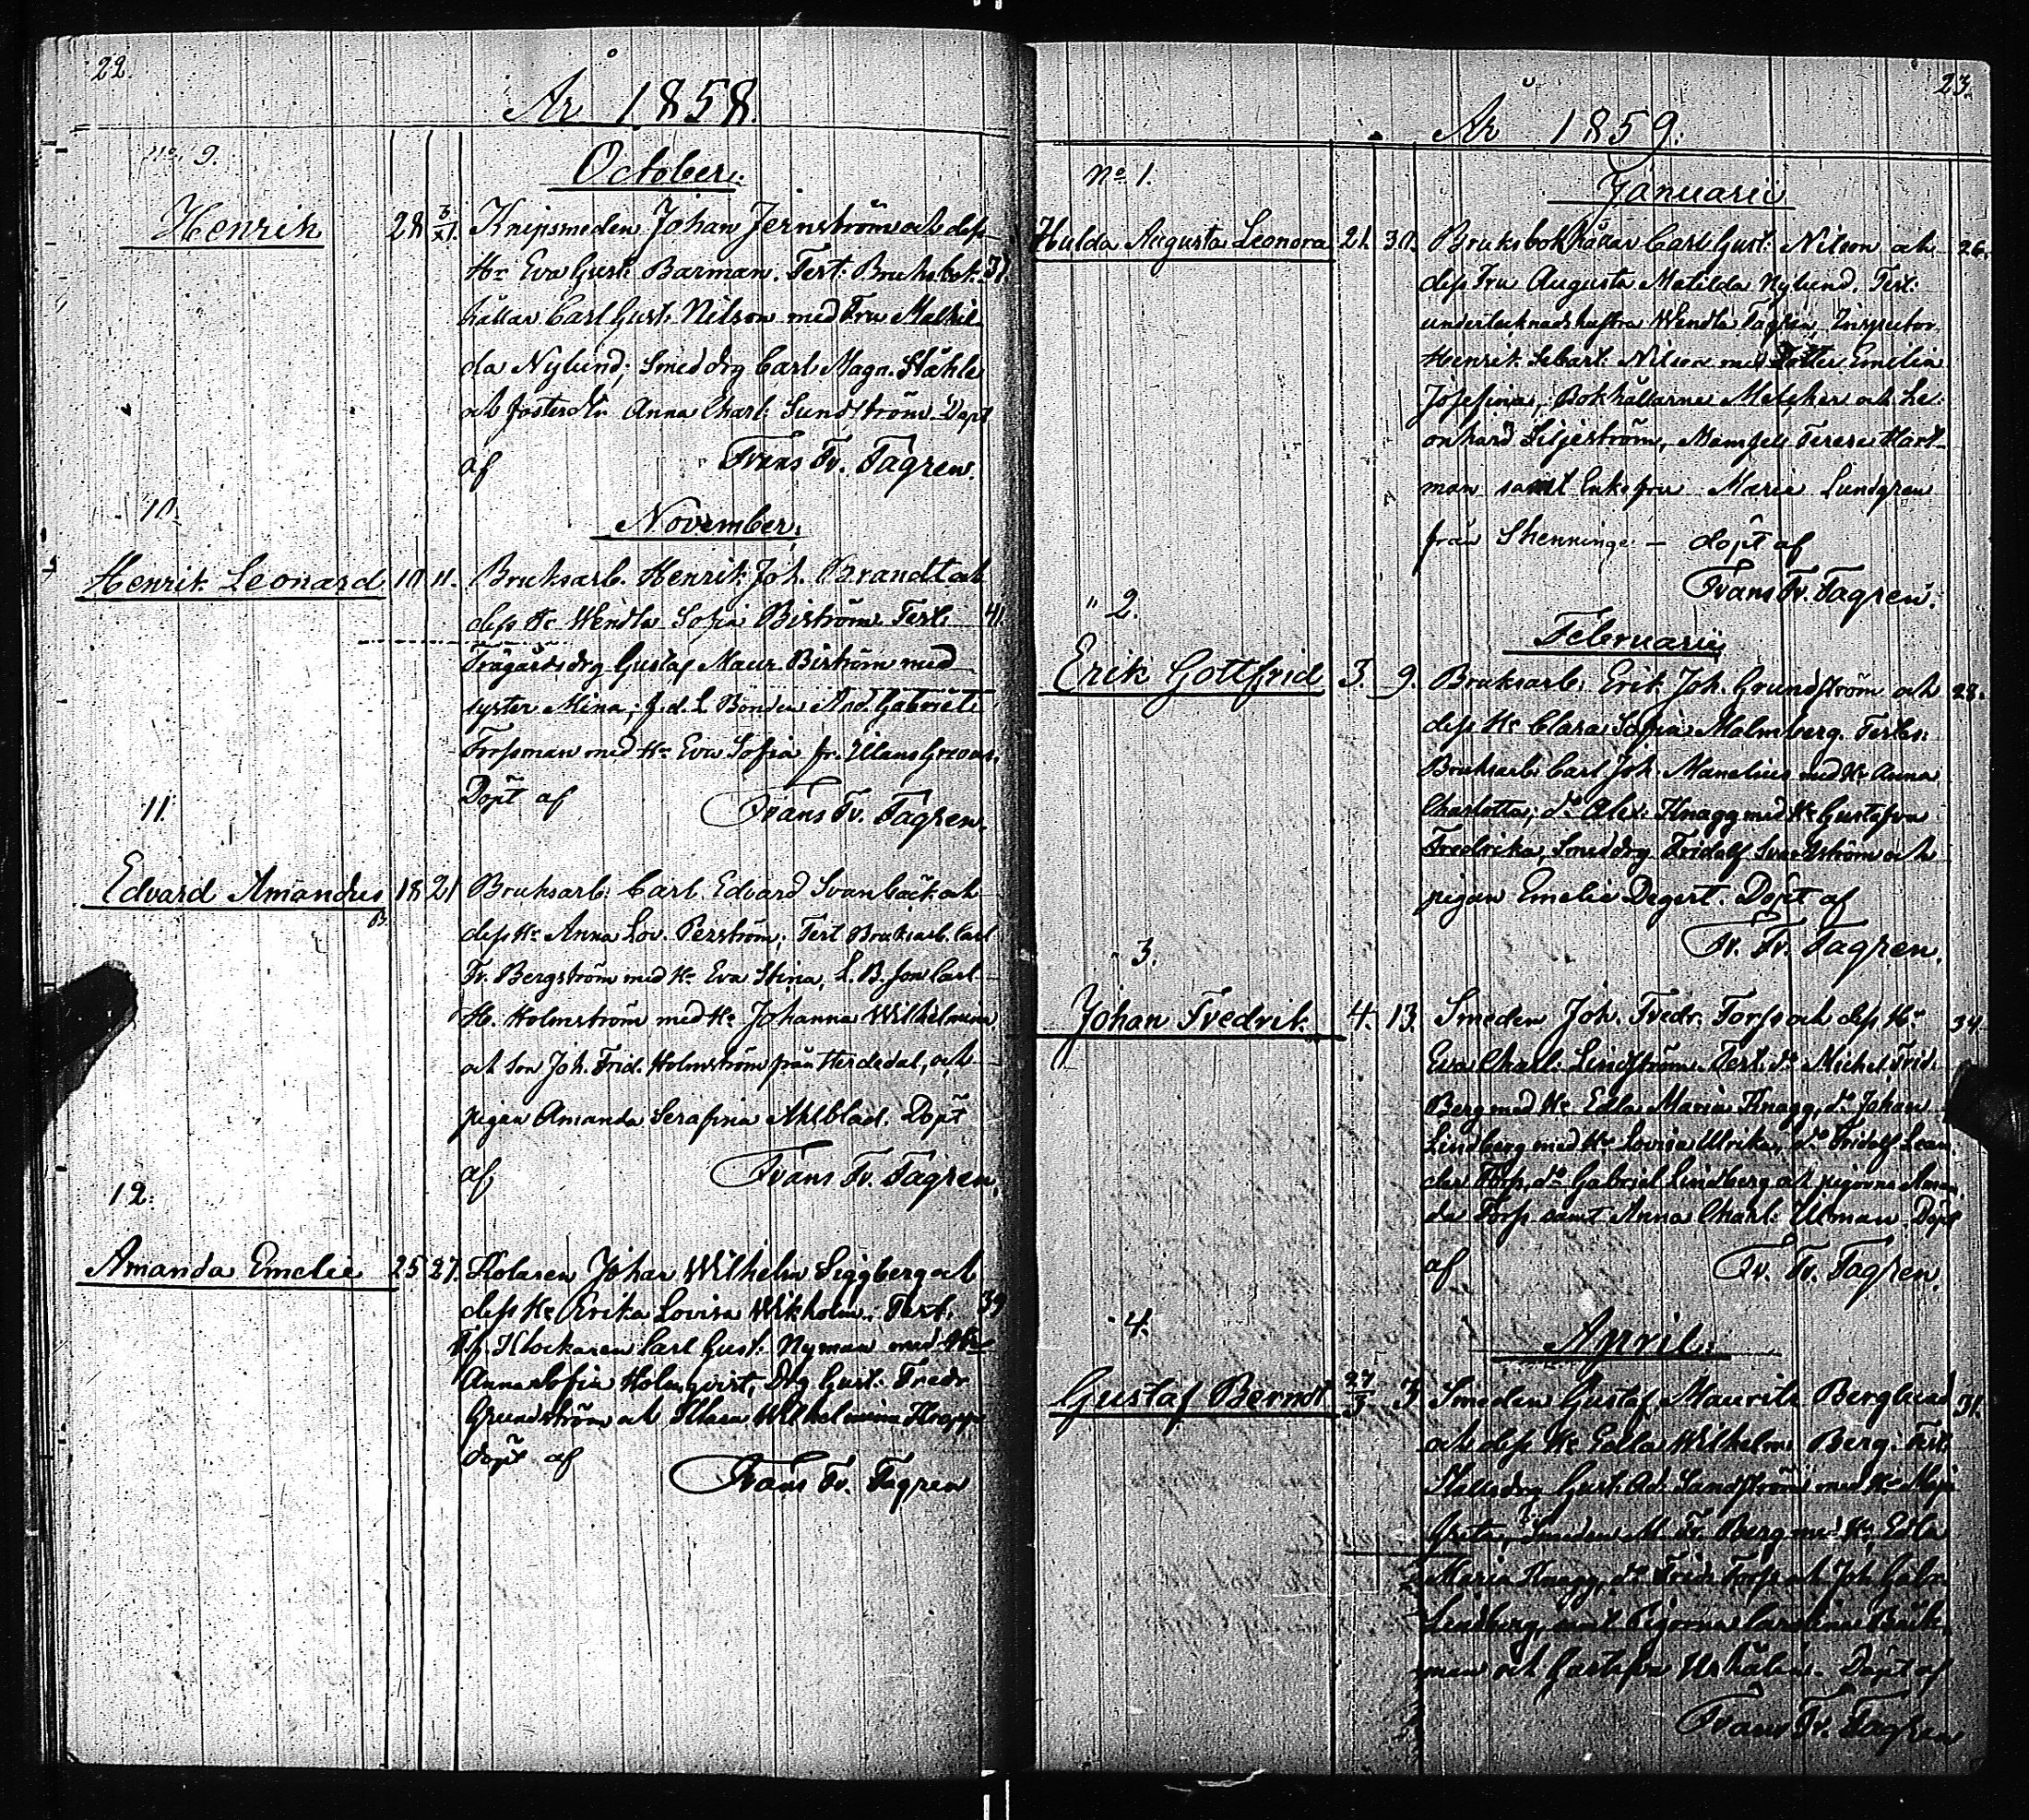 22.
År 1858.
No. 9.
October.
Henrik 28 3/XI. Knipsmeden Johan Jernström och dess
Hr Eva Gust: Barman. Test: Bruksbok- 37.
hållar Carl Gust: Nilson med Fru Mathil-
da Nylund; Smeddrg Carl Magn. Ståhle
och fosterdtr Anna Charl: Sundström. Döpt
af Frans Fr. Tagren.
10.
November.
Henrik Leonard 10 11. Bruksarb. Henrik Joh. Brandt och
dess Hr Wendla Sofia Biström. Test: 41.
Trägårdsdrg Gustaf Maur. Biström med
syster Mina; f.d. L. Bonden And. Gabriel
Trossman med Hr Eva Sofia fr.
Döpt af Frans Fr. Tagren.
11.
Edvard Amandus 18 21 Bruksarb: Carl Edvard Svanbäck och
dess Hr Anna Lov. Perström; Test Bruksarb. Carl
Fr. Bergström med Hr Eva Stina, L.B. son Carl
H. Holmström med Hr Johanna Wilhelmina
och son Joh. Frid. Holmström från Herdedal, och
pigan Amanda Serafina Ahlblad. Döpt
af Frans Fr. Tagren.
12.
Amanda Emelie 25 27. Kolaren Johan Wilhelm Siggberg och
dess Hr Erika Lovisa Wikholm. Test: 39
T.f. Klockaren Carl Gust: Nyman med Hr
Anna Sofia Holmqvist, Drg Gust: Fredr.
Grundström och Klara Wilhelmina
döpt af Frans Fr. Tagren
23.
År 1859.
No 1.
Januarii
Hulda Augusta Leonora 21. 30. Bruksbokhållar Carl Gust: Nilson och 26.
dess Fru Augusta Matilda Nylund. Test:
undertecknads hustru Wendla Tagren, Inspector
Henrik Nilson med Dotter Emilia
Josefina; Bokhållarne Melcher och Le-
onhard Liljeström, Mamsell Terese Hart-
man samt Enkefru Maria Lundgren
från Skenninge. – döpt af
Frans Fr. Tagren.
" 2.
Februarii
Erik Gottfrid 3 9. Bruksarb: Erik Joh. Grundström och 28.
dess Hr Clara Sofia Malmberg. Testes:
Bruksarb: Carl Joh. Manelius med Hr Anna
Charlotta; do Alex: Knagg med Hr Gustafva
Fredrika, Smeddrg Fridolf och
pigan Emelie Degert. Döpt af
Fr. Fr. Tagren.
" 3.
Johan Fredrik 4. 13. Smeden Joh. Fredr. Torss och dess Hr 34.
Eva Charl: Lindström. Test: do Michel Frid.
Berg med Hr Edla Maria Knagg, do Johan
Lindberg med Hr Lovisa Ulrika, do Fridolf Lean-
der Torss, do Gabriel Lindberg och pigorna Aman-
da Torss samt Anna Charl: Ulman. Döpt
af Fr. Fr. Tagren.
" 4.
April.
Gustaf Berndt 27/3 3 Smeden Gustaf Maurits Berglund 31.
och dess Hr Edla Wilhelm: Berg. Test:
Stallsdrg Gust. Ad. Sandström med Hr Maja
Greta, Smeden M. Fr. Berg med Hr Edla
Maria Knagg, do Frid: Torss och Joh. Gabr.
Lindberg, samt Pigorna Carolina
man och Gustafva. Döpt af
Frans Fr. Tagren